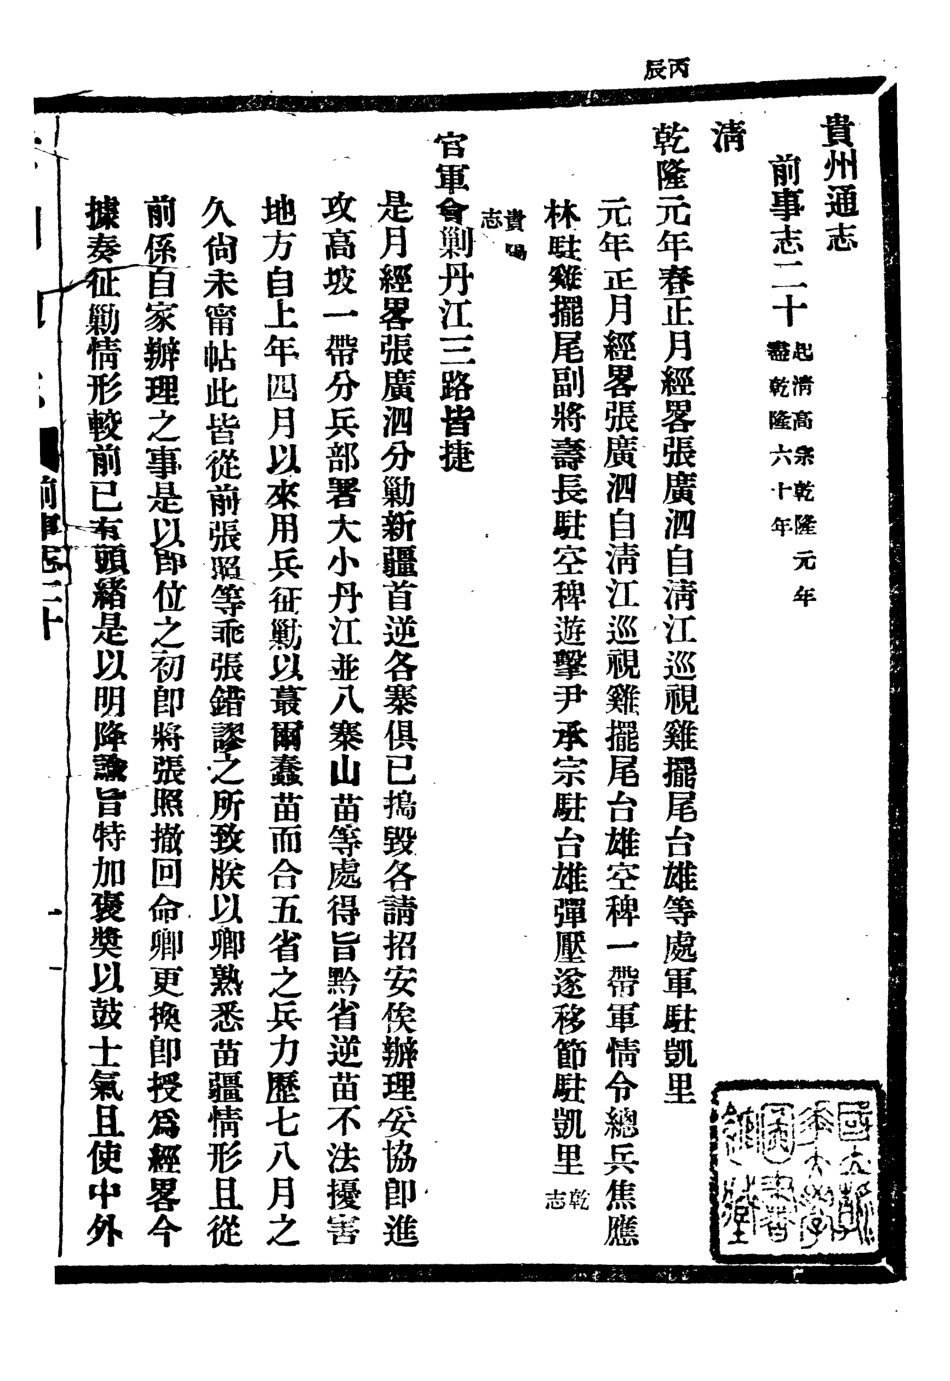 丙辰
貴州通志
前事志二十 起清高宗乾隆元年
盡乾隆六十年
清
乾隆元年春正月經畧張廣泗自清江巡視雞擺尾台雄等處軍駐凱里
元年正月經畧張廣泗自清江巡視雞擺尾台雄空稗一帶軍情令總兵焦應
林駐雞擺尾副將壽長駐空稗遊擊尹承宗駐台雄彈壓遂移節駐凱里 乾
志
貴陽
志
官軍會剿丹江三路皆捷
是月經畧張廣泗分勦新疆首逆各寨俱已搗毀各請招安俟辦理妥協即進
攻高坡一帶分兵部署大小丹江並八寨山苗等處得旨黔省逆苗不法擾害
地方自上年四月以來用兵征勦以蕞爾蠢苗而合五省之兵力歷七八月之
久尙未甯帖此皆從前張照等乖張錯謬之所致朕以卿熟悉苗疆情形且從
前係自家辦理之事是以即位之初即將張照撤回命卿更換即授爲經畧今
據奏征勦情形較前已有頭緒是以明降諭旨特加褒奬以鼓士氣且使中外
前事志二十